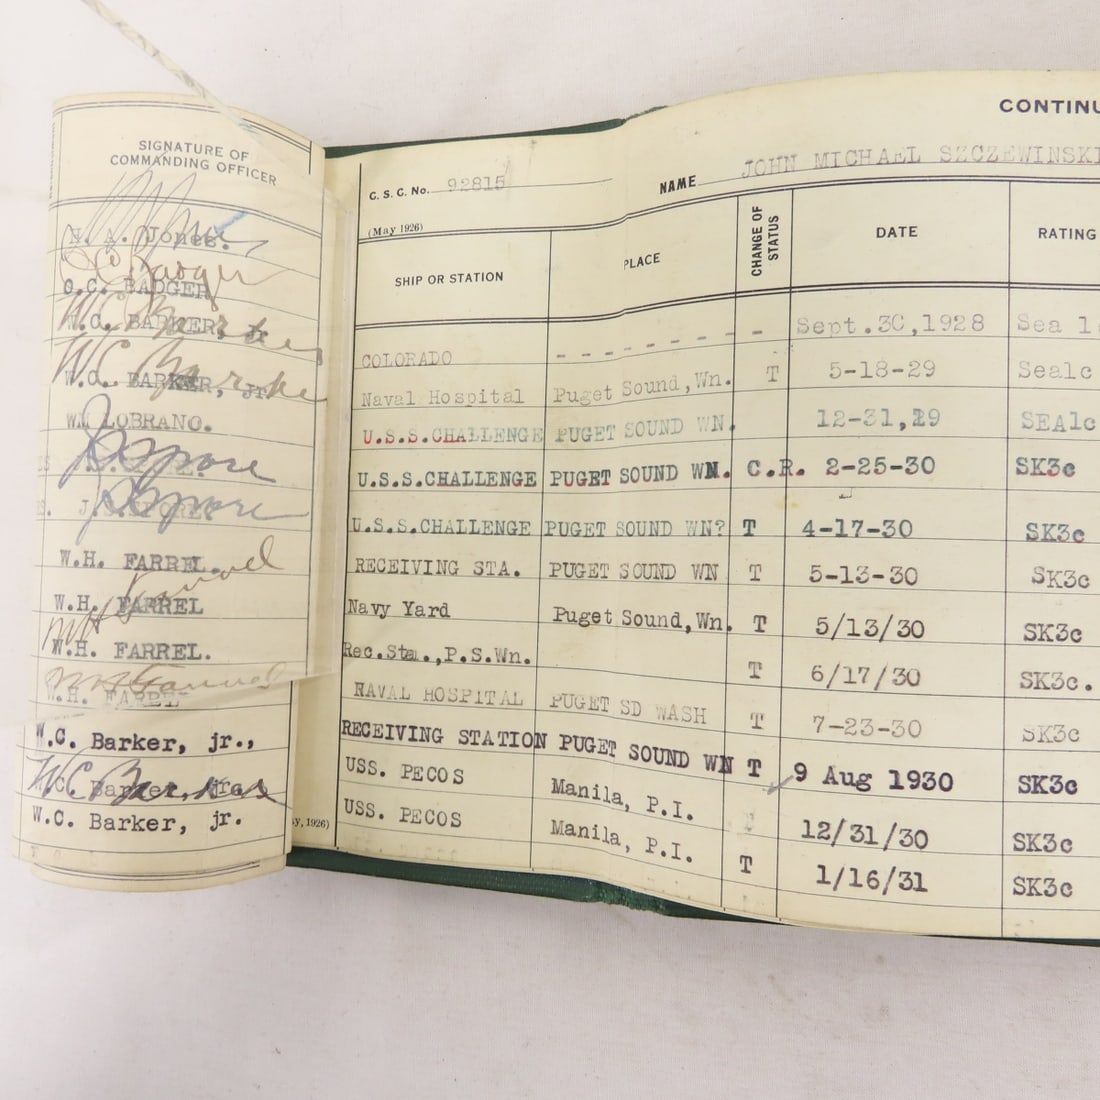 SIGNATURE OF
COMMANDING OFFICER
N. A. Jones.
O.C. BADGER
W.C. BARKER, Jr.
W.C. BARKER, Jr.
WM LOBRANO.
W.H. FARREL.
W.H. FARREL
W.H. FARREL.
W.H. FAREL
W.C. Barker, jr.,
W.C. Barker, jr.
W.C. Barker, jr.
CONTINU
C. S. C. No. 92815
NAME JOHN MICHAEL SZCZEWINSKI
(May 1926)
SHIP OR STATION PLACE CHANGE OF STATUS DATE RATING
COLORADO - - - - - - - - - Sept.30,1928 Sea 1c
Naval Hospital Puget Sound,Wn. T 5-18-29 Sea1c
U.S.S.CHALLENGE PUGET SOUND WN. 12-31,29 SEA1c
U.S.S.CHALLENGE PUGET SOUND WN. C.R. 2-25-30 SK3c
U.S.S.CHALLENGE PUGET SOUND WN? T 4-17-30 SK3c
RECEIVING STA. PUGET SOUND WN T 5-13-30 SK3c
Navy Yard Puget Sound,Wn. T 5/13/30 SK3c
Rec.Sta.,P.S.Wn. T 6/17/30 SK3c.
NAVAL HOSPITAL PUGET SD WASH T 7-23-30 SK3c
RECEIVING STATION PUGET SOUND WN T 9 Aug 1930 SK3c
USS. PECOS Manila, P.I. 12/31/30 SK3c
USS. PECOS Manila, P.I. T 1/16/31 SK3c
y, 1926)